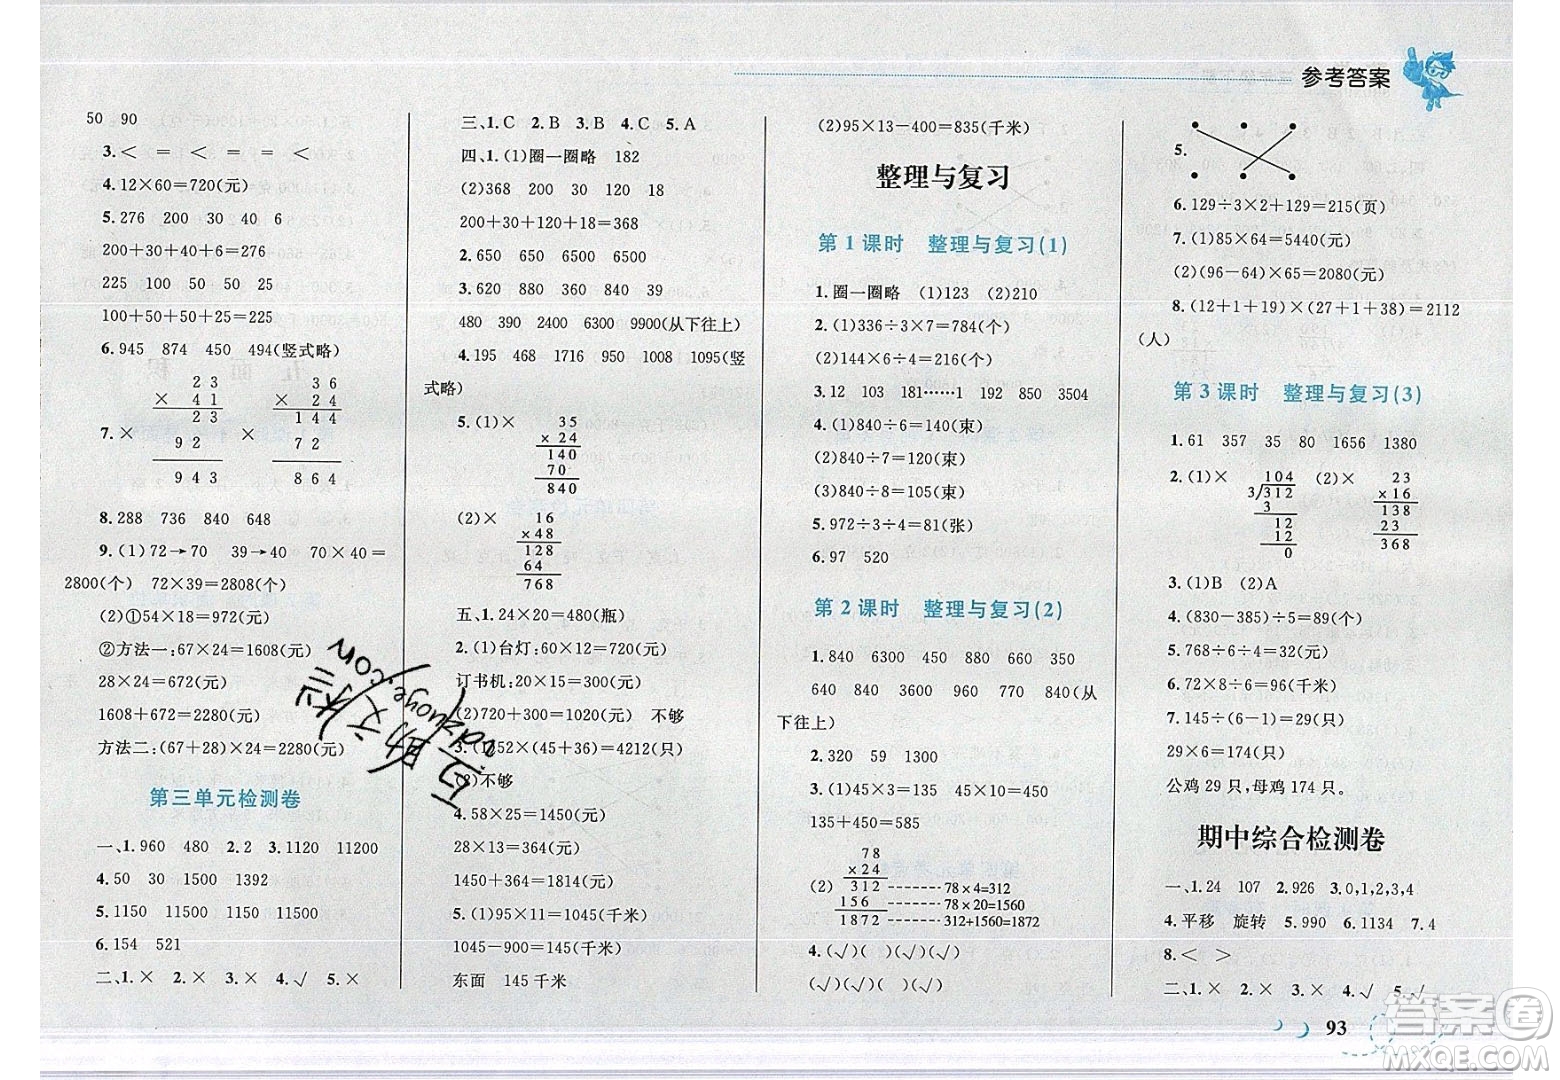 参考答案
50 90
3.＜ ＝ ＜ ＝ ＝ ＜
4.12×60=720(元)
5.276 200 30 40 6
200+30+40+6=276
225 100 50 50 25
100+50+50+25=225
6.945 874 450 494(竖式略)
7.×
2 3
× 4 1
2 3
9 2
9 4 3
3 6
× 2 4
1 4 4
7 2
8 6 4
8.288 736 840 648
9.(1)72→70 39→40 70×40=
2800(个) 72×39=2808(个)
(2)①54×18=972(元)
②方法一:67×24=1608(元)
28×24=672(元)
1608+672=2280(元)
方法二:(67+28)×24=2280(元)
第三单元检测卷
一、1.960 480 2.2 3.1120 11200
4.50 30 1500 1392
5.1150 11500 1150 1150
6.154 521
二、1.× 2.× 3.× 4.√ 5.×
三、1.C 2.B 3.B 4.C 5.A
四、1.(1)圈一圈略 182
(2)368 200 30 120 18
200+30+120+18=368
2.650 650 6500 6500
3.620 880 360 840 39
480 390 2400 6300 9900(从下往上)
4.195 468 1716 950 1008 1095(竖
式略)
5.(1)×
35
×24
140
70
840
(2)×
16
×48
128
64
768
五、1.24×20=480(瓶)
2.(1)台灯:60×12=720(元)
订书机:20×15=300(元)
(2)720+300=1020(元) 不够
3.(1)52×(45+36)=4212(只)
(2)不够
4.58×25=1450(元)
28×13=364(元)
1450+364=1814(元)
5.(1)95×11=1045(千米)
1045-900=145(千米)
东面 145千米
(2)95×13-400=835(千米)
整理与复习
第1课时 整理与复习(1)
1.圈一圈略 (1)123 (2)210
2.(1)336÷3×7=784(个)
(2)144×6÷4=216(个)
3.12 103 181……1 192 850 3504
4.(1)840÷6=140(束)
(2)840÷7=120(束)
(3)840÷8=105(束)
5.972÷3÷4=81(张)
6.97 520
第2课时 整理与复习(2)
1.840 6300 450 880 660 350
640 840 3600 960 770 840(从
下往上)
2.320 59 1300
3.(1)45×3=135 45×10=450
135+450=585
(2)
78
×24
312-------78×4=312
156-------78×20=1560
1872-------312+1560=1872
4.(√)( )(√)( )(√)
(√)(√)( )(√)
5.
6.129÷3×2+129=215(页)
7.(1)85×64=5440(平方厘米)
(2)(96-64)×65=2080(平方厘米)
8.(12+1+19)×(27+1+38)=2112
(人)
第3课时 整理与复习(3)
1.61 357 35 80 1656 1380
2.(1)×
104
3)312
3
12
12
0
(2)×
23
×16
138
23
368
3.(1)B (2)A
4.(830-385)÷5=89(个)
5.768÷6÷4=32(本)
6.72×8÷6=96(千米)
7.145÷(6-1)=29(只)
29×6=174(只)
公鸡29只,母鸡174只。
期中综合检测卷
一、1.24 107 2.926 3.0,1,2,3,4
4.平移 旋转 5.990 6.1134 7.4
8.＜ ＞
二、1.√ 2.× 3.× 4.√ 5.√
93
百助文栏
edzuoye.com
答案圈
MXQE.COM